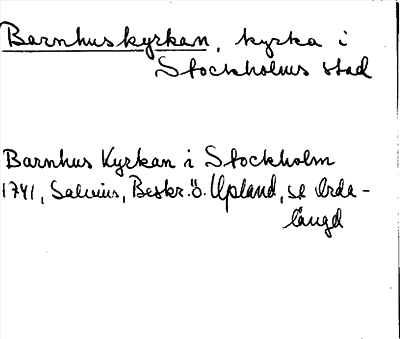 Barnhuskyrkan, kyrka i
Stockholms stad
Barnhus Kyrkan i Stockholm
1741, Salvius, Beskr. ö. Upland, se Orda-
längd